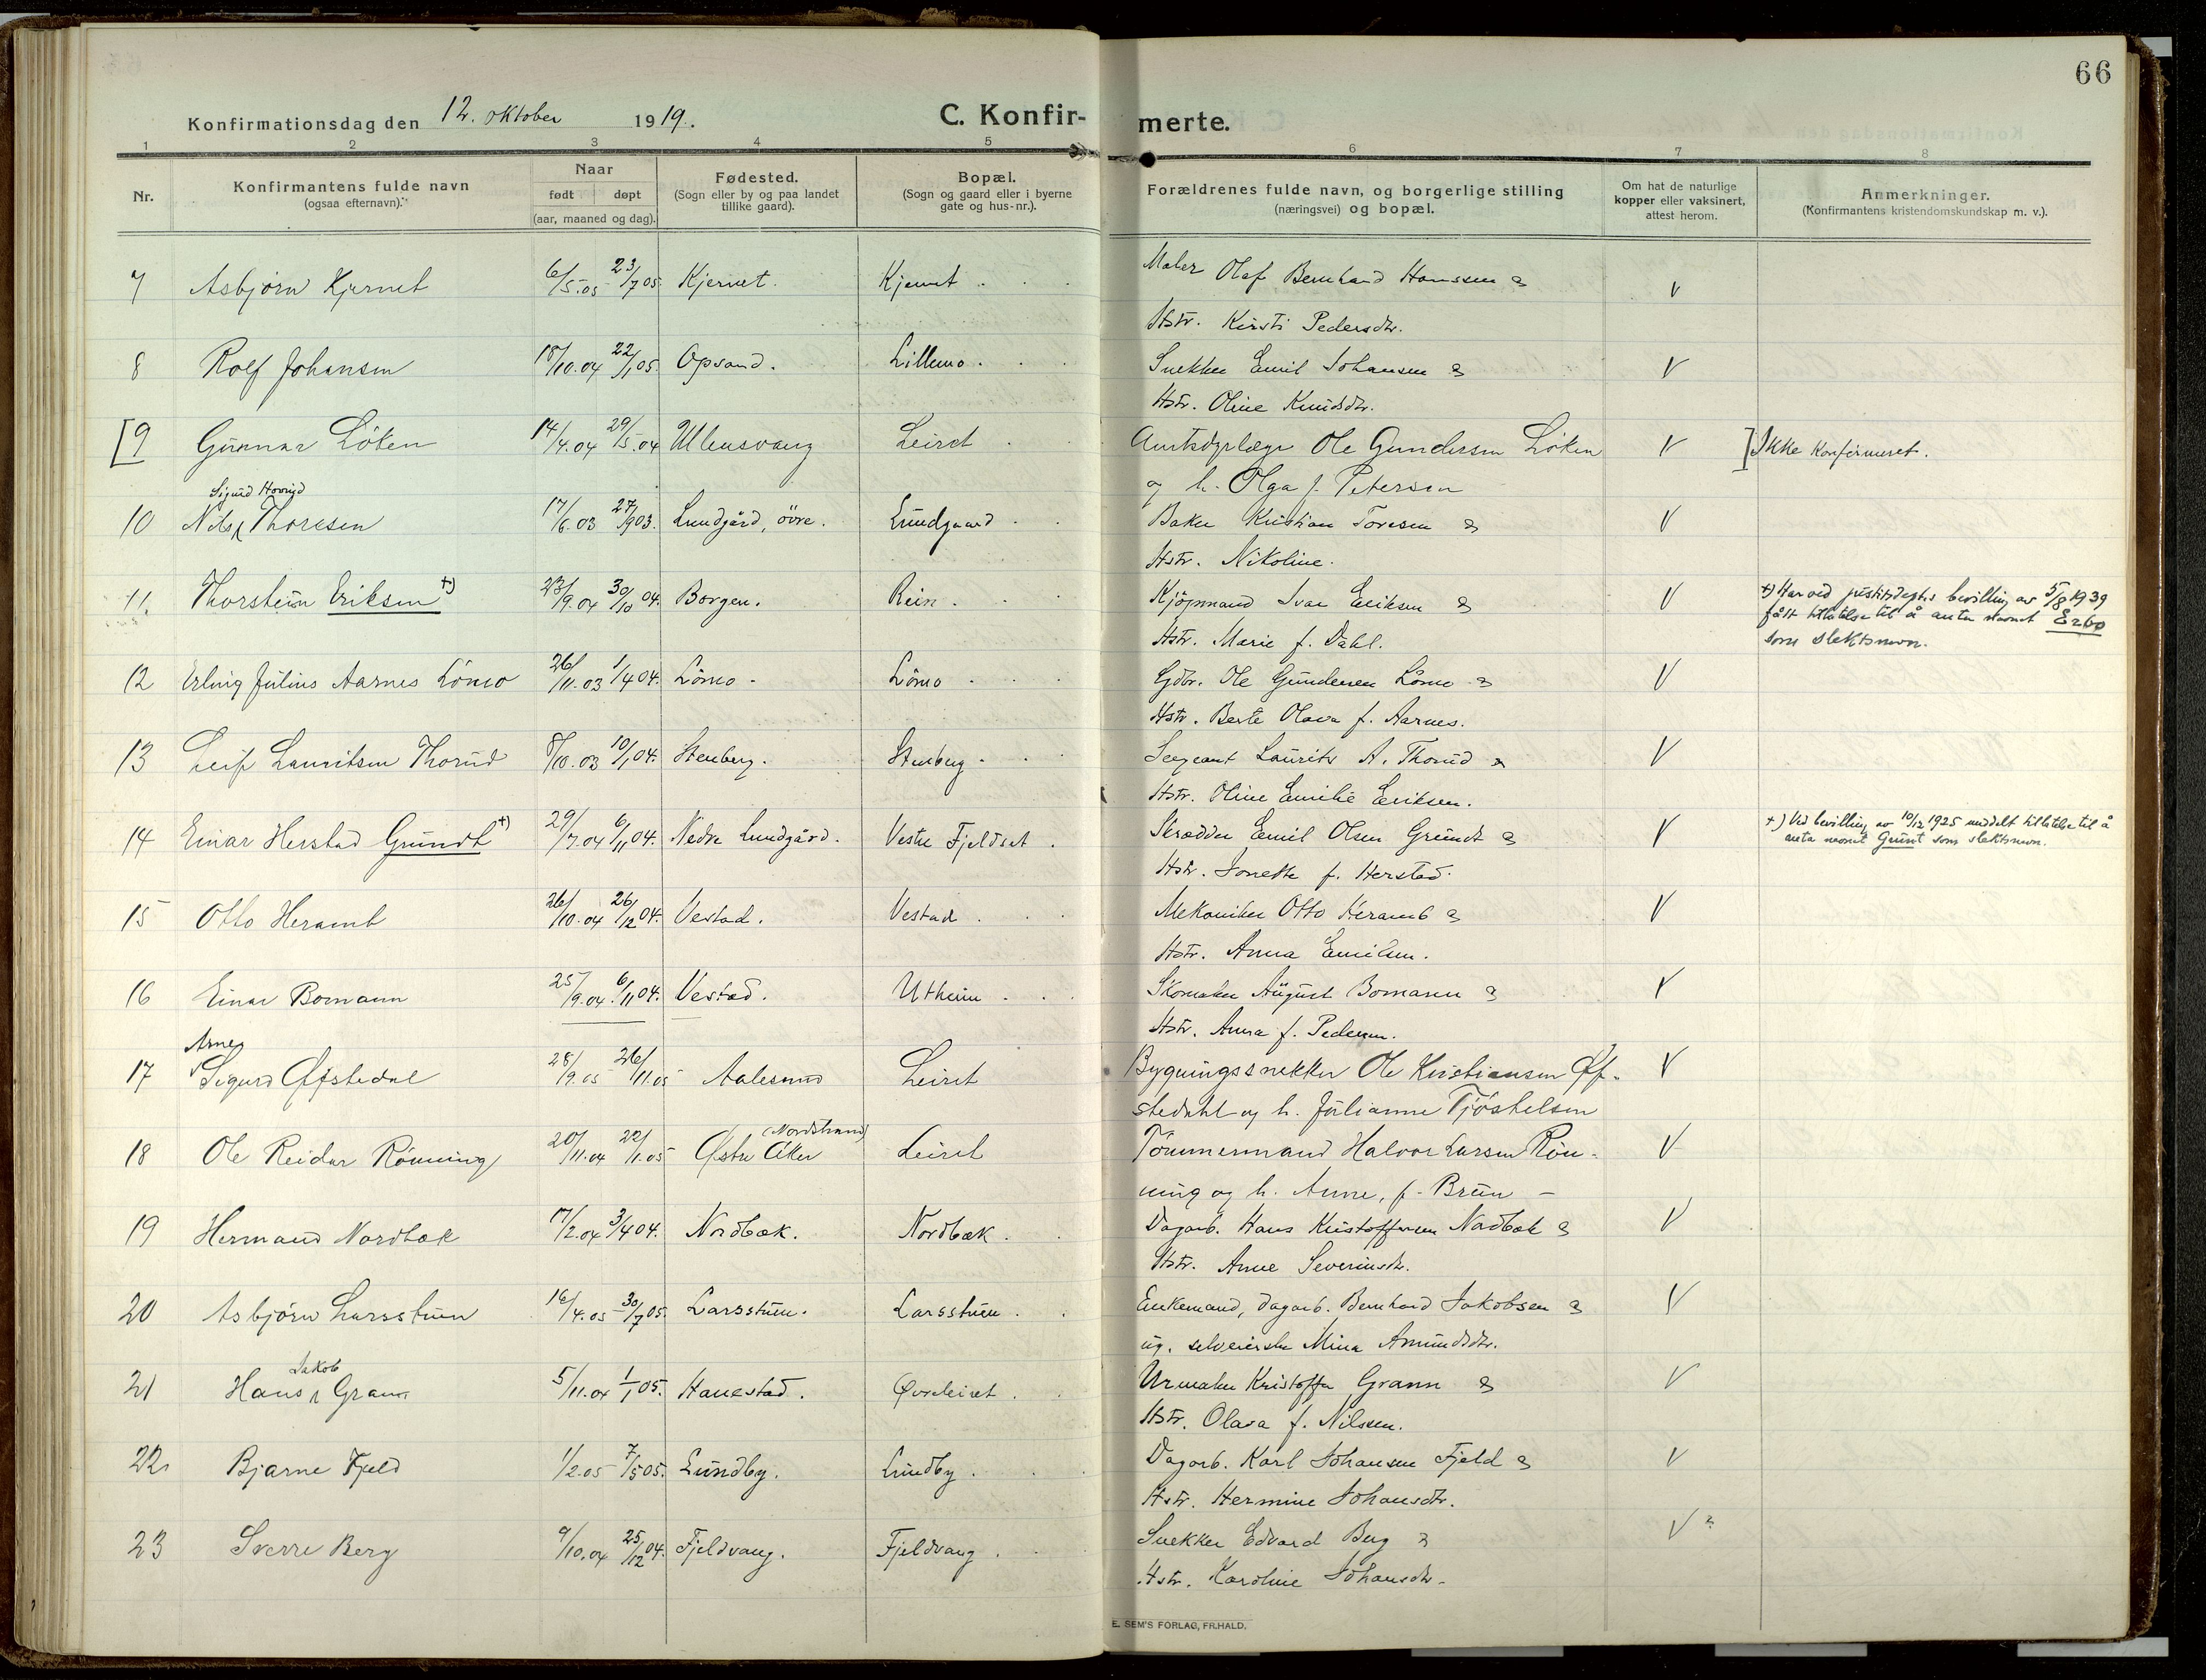 66
Konfirmationsdag den 12. oktober 1919.
C. Konfirmerte.
1 2 3 4 5 6 7 8
Nr.
Konfirmantens fulde navn
(ogsaa efternavn).
Naar
født døpt
(aar, maaned og dag).
Fødested.
(Sogn eller by og paa landet
tillike gaard).
Bopæl.
(Sogn og gaard eller i byerne
gate og hus-nr.).
Forældrenes fulde navn, og borgerlige stilling
(næringsvei) og bopæl.
Om hat de naturlige
kopper eller vaksinert,
attest herom.
Anmerkninger.
(Konfirmantens kristendomskundskap m. v.).
7 Asbjørn Kjernet 6/5.05 23/7 05. Kjernet. Kjernet Maler Olaf Bernhard Hanssen &
Hstr. Kirsti Pedersdtr. V
8 Rolf Johansen 18/10.04 22/1 05. Opsand. Lillemo. Snekker Emil Johansen &
Hstr. Oline Knudsdtr. V
[9 Gunnar Löken 14/4.04 29/5.04 Ullensvang Leiret Amtsdyrlæge Ole Gundersen Löken
og h. Olga f. Petersen V ] Ikke konfirmeret.
Sigurd Hovrud
10 Nils Thoresen 17/6.03 27/9 03. Lundgård, övre. Lundgaard Baker Kristian Toresen &
Hstr. Nikoline. V
11. Thorstein Eriksen +) 23/9.04 30/10 04. Borgen. Rein. Kjöpmand Ivar Eriksen &
Hstr. Marie f. Dahl. V +) Har ved justitsdepts bevilling av 5/8 1939
fått tillatelse til å anta navnet Erbo
som slektsnavn.
12 Erling Julius Aarnes Lömo 26/11.03 1/4 04. Lömo. Lömo Gdbr. Ole Gundersen Lömo &
Hstr. Berte Olava f. Aarnes. V
13 Leif Lauritsen Thorud 8/10.03 10/1 04. Stenberg. Stenberg Sergeant Laurits A. Thorud &
Hstr. Oline Emilie Eriksen. V
14 Einar Herstad Grundt +) 29/7.04 6/11 04. Nedre Lundgård. Vestre Fjeldset Skredder Emil Olsen Grundt &
Hstr. Jonette f. Herstad. V +) Ved bevilling av 10/12 1925 meddelt tillatelse til å
anta navnet Grunt som slektsnavn.
15 Otto Heramb 26/10.04 26/12 04. Vestad. Vestad Mekaniker Otto Heramb &
Hstr. Anna Emilsen. V
16 Einar Bomann 25/9.04. 6/11 04. Vestad. Utheim Skomaker August Bomann &
Hstr. Anna f. Pedersen. V
Arne
17 Sigurd Øfstedal 28/9.05 26/11.05 Aalesund Leiret Bygningssnekker Ole Kristiansen Øf-
stedahl og h. Julianne Tjöstelsen V
(Nordstrand)
18 Ole Reidar Rönning 20/11.04 22/1.05 Østre Aker Leiret Tömmermand Halvor Larsen Rön-
ning og h. Anne, f. Brun - V
19 Hermand Nordbæk 17/2.04 3/4 04. Nordbæk. Nordbæk. Dagarb. Hans Kristoffersen Nordbæk &
Hstr. Anne Severinsdtr. V
20 Asbjörn Larsstuen 16/4.05 30/7 05. Larsstuen. Larsstuen. Enkemand, dagarb. Bernhard Jakobsen &
ug. selveierske Mina Amundsdtr. V
Jakob
21 Hans Grann 5/11.04 1/1 05. Hanestad. Øvreleiret Urmaker Kristoffer Grann &
Hstr. Olava f. Nilssen. V
22 Bjarne Fjeld 1/2.05 7/5 05. Lundby. Lundby Dagarb. Karl Johansen Fjeld &
Hstr. Hermine Johansdtr. V
23 Sverre Berg 9/10.04 25/12 04. Fjeldvang. Fjeldvang Snekker Edvard Berg &
Hstr. Karoline Johansdtr. V ?
E. SEM'S FORLAG, FR.HALD.